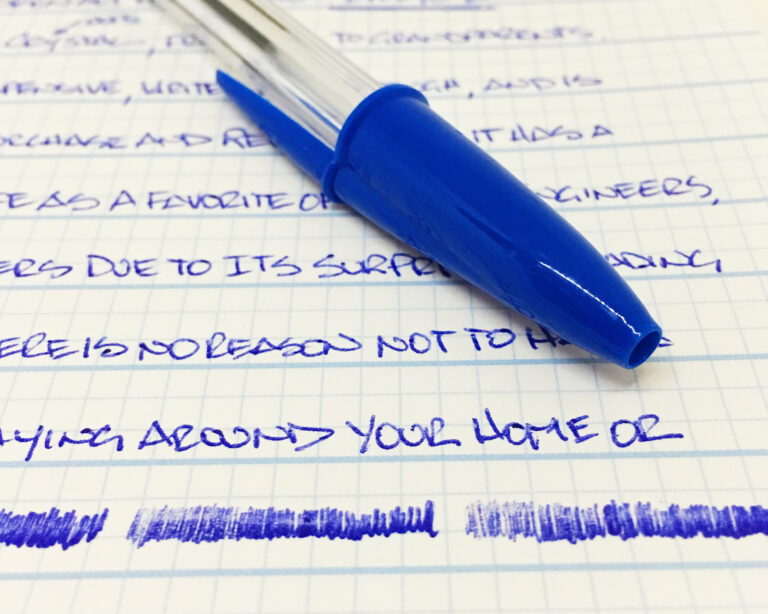 CRYSTAL, TO GRANDPARENTS.
PENSIVE, AND IS
URCHASE AND RE IT HAS A
FE AS A FAVORITE OF NGINEERS,
ERS DUE TO ITS SURPRI ADING
ERE IS NO REASON NOT TO HA
AYING AROUND YOUR HOME OR